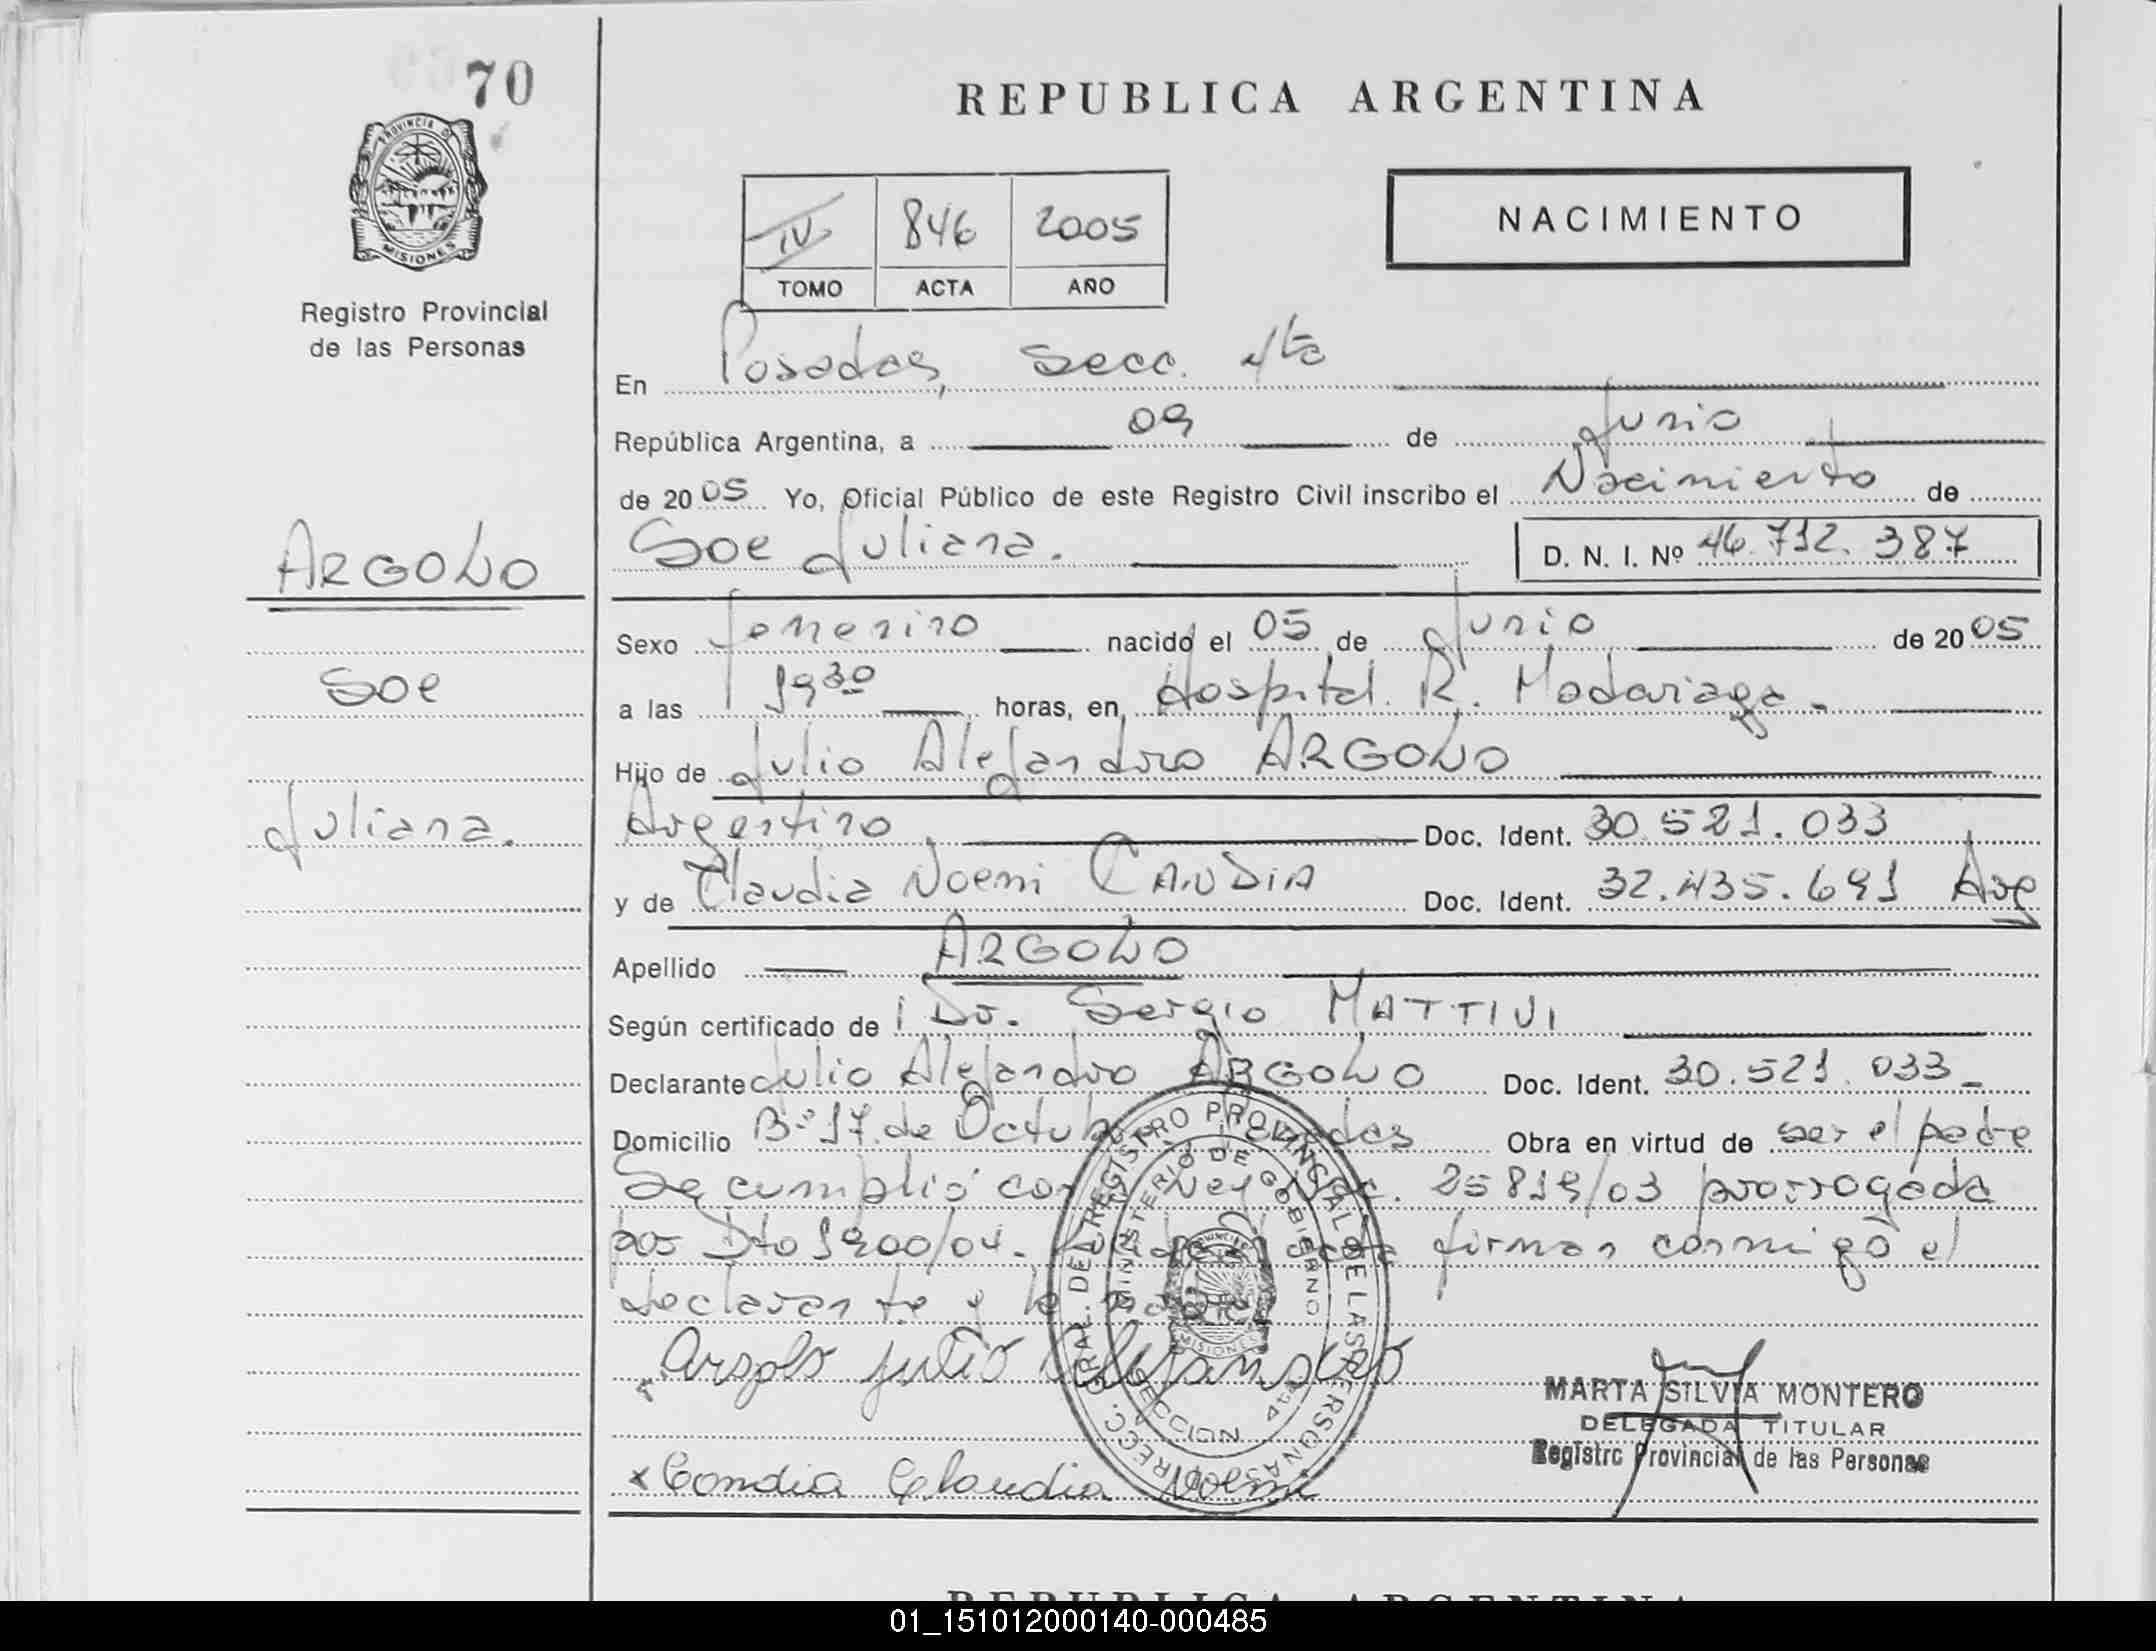 70
PROVINCIA DE
MISIONES
Registro Provincial
de las Personas
ARGOLO
Soe
Juliana.
REPUBLICA ARGENTINA
IV 846 2005
TOMO ACTA AÑO
NACIMIENTO
En Posadas, Secc. 4ta
República Argentina, a 09 de Junio
de 2005 Yo, Oficial Público de este Registro Civil inscribo el Nacimiento de
Soe Juliana. D. N. I. Nº 46.712.387
Sexo femenino nacido el 05 de Junio de 2005
a las 19 30 horas, en Hospital R. Madariaga.
Hijo de Julio Alejandro ARGOLO
Argentino Doc. Ident. 30.521.033
y de Claudia Noemi CANDIA Doc. Ident. 32.435.691 Arg
Apellido ARGOLO
Según certificado de Dr. Sergio MATTIVI
Declarante Julio Alejandro ARGOLO Doc. Ident. 30.521.033
Domicilio Bº 17 de Octubre Posadas Obra en virtud de ser el padre
Se cumplió con Ley Nac. 25819/03 prorrogada
por Dto 1900/04. acta firman conmigo el
declarante y la madre
Argolo julio Alejandro
x Candia Claudia Noemi
DIRECC. GRAL. DEL REGISTRO PROVINCIAL DE LAS PERSONAS
MINISTERIO DE GOBIERNO
MISIONES
SECCION 4ta
MARTA SILVIA MONTERO
DELEGADA TITULAR
Registro Provincial de las Personas
REPUBLICA ARGENTINA
01_151012000140-000485